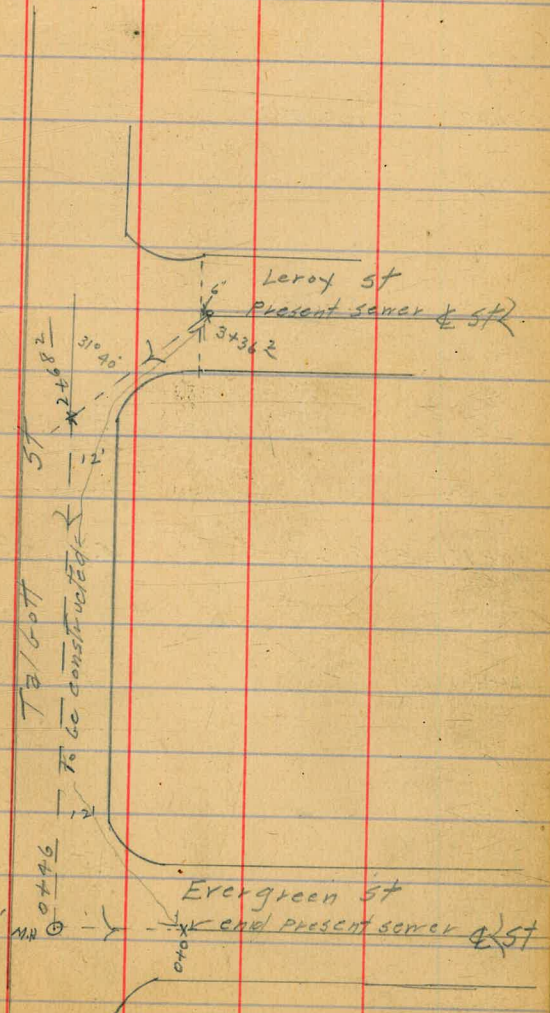 Leroy St
6'
Present sewer ℄ St
3+36²
31° 40'
2+68²
12'
Talbott St
To be constructed
12'
0+46
Evergreen St
M.H.
end present sewer ℄ St
0+0